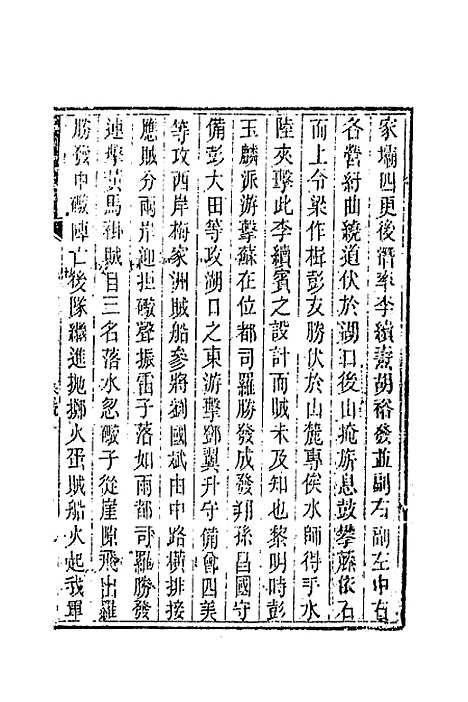 家壩四更後潛率李續燾胡裕發並副右副左中右
各營紆曲繞道伏於湖口後山掩旂息鼓攀藤依石
而上令梁作楫彭友勝伏於山麓專俟水師得手水
陸夾擊此李續賓之設計而賊未及知也黎明時彭
玉麟派游擊蘇在位都司羅勝發成發翔孫昌國守
備彭大田等攻湖口之東游擊鄧翼升守備曾四美
等攻西岸梅家洲賊船參將劉國斌由中路橫排接
應賊分兩岸迎拒礮聲振雷子落如雨都司羅勝發
連擊黃馬褂賊目三名落水忽礮子從崖隙飛出羅
勝發中礮陣亡後隊繼進拋擲火蛋賊船火起我軍